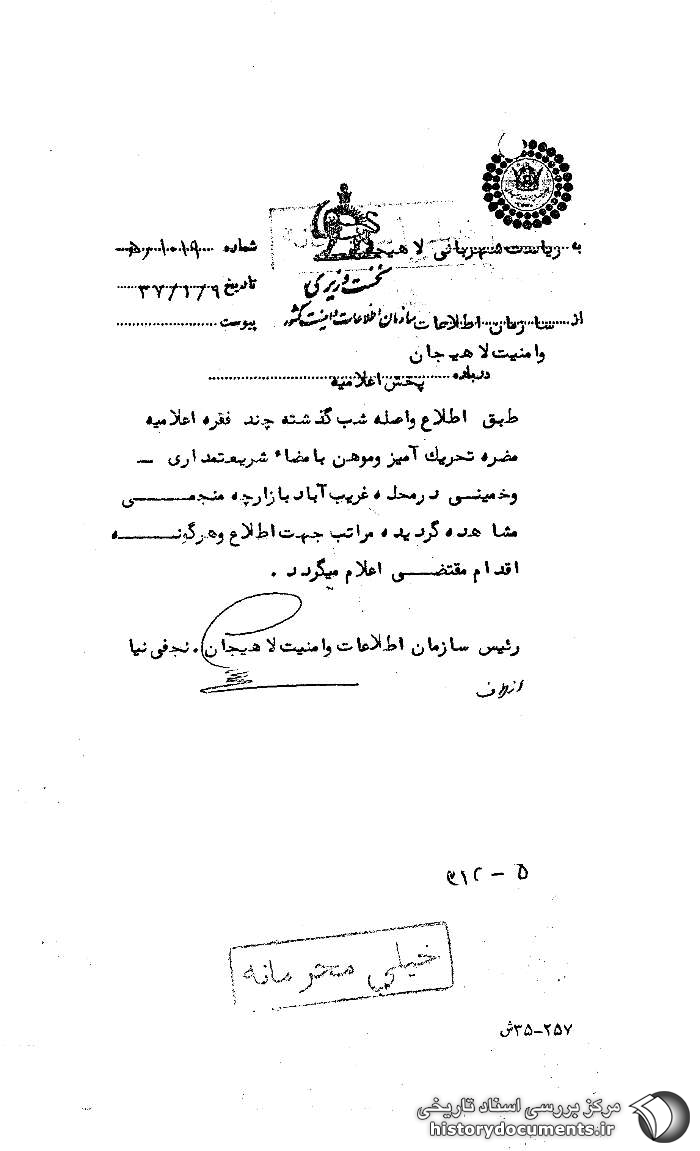 به ریاست شهربانی لاهیجان
شماره
نخست وزیری
تاریخ ۳۷/۱/۹
از سازمان اطلاعات سازمان اطلاعات و امنیت کشور
پیوست
وامنیت لاهیجان
درباره پخش اعلامیه
طبق اطلاع واصله شب گذشته چند فقره اعلامیه
مضره تحریك آمیز وموهن بامضاء شریعتمداری –
وخمینی درمحله غریب آباد بازارچه منجمی
مشاهده گردیده مراتب جهت اطلاع وهرگونه
اقدام مقتضی اعلام میگردد .
رئیس سازمان اطلاعات وامنیت لاهیجان . نجفی نیا
از طرف
۵ – ۳۱۲
خیلی محرمانه
۳۵-۲۵۷ش
مرکز بررسی اسناد تاریخی
historydocuments.ir